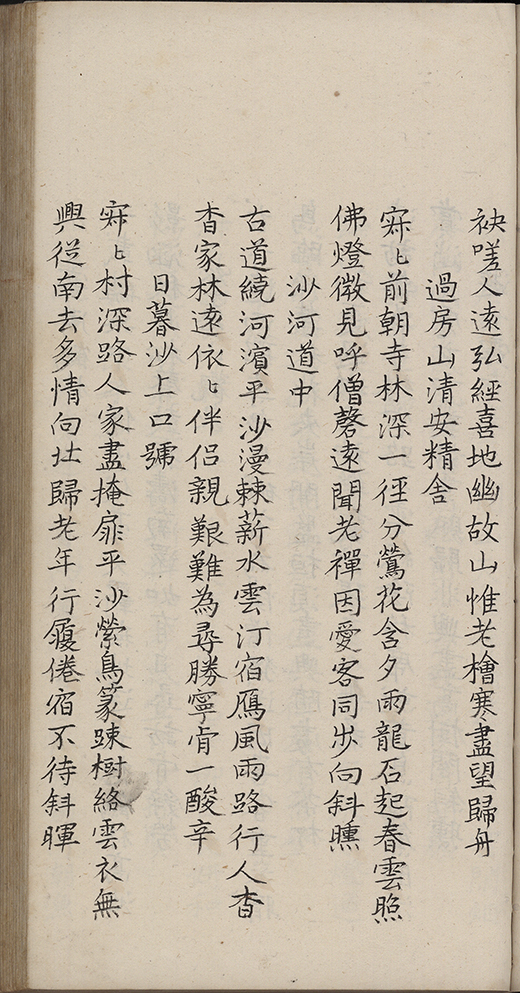 袂嗟人遠弘經喜地幽故山惟老檜寒盡望歸舟
過房山清安精舍
寂〻前朝寺林深一徑分鶯花含夕雨龍石起春雲照
佛燈微見呼僧磬遠聞老禪因愛客同步向斜曛
沙河道中
古道繞河濱平沙漫棘薪水雲汀宿鴈風雨路行人杳
杳家林遠依〻伴侶親艱難為尋勝寧肯一酸辛
日暮沙上口號
寂〻村深路人家盡掩扉平沙縈鳥篆踈樹絡雲衣無
興從南去多情向北歸老年行履倦宿不待斜暉